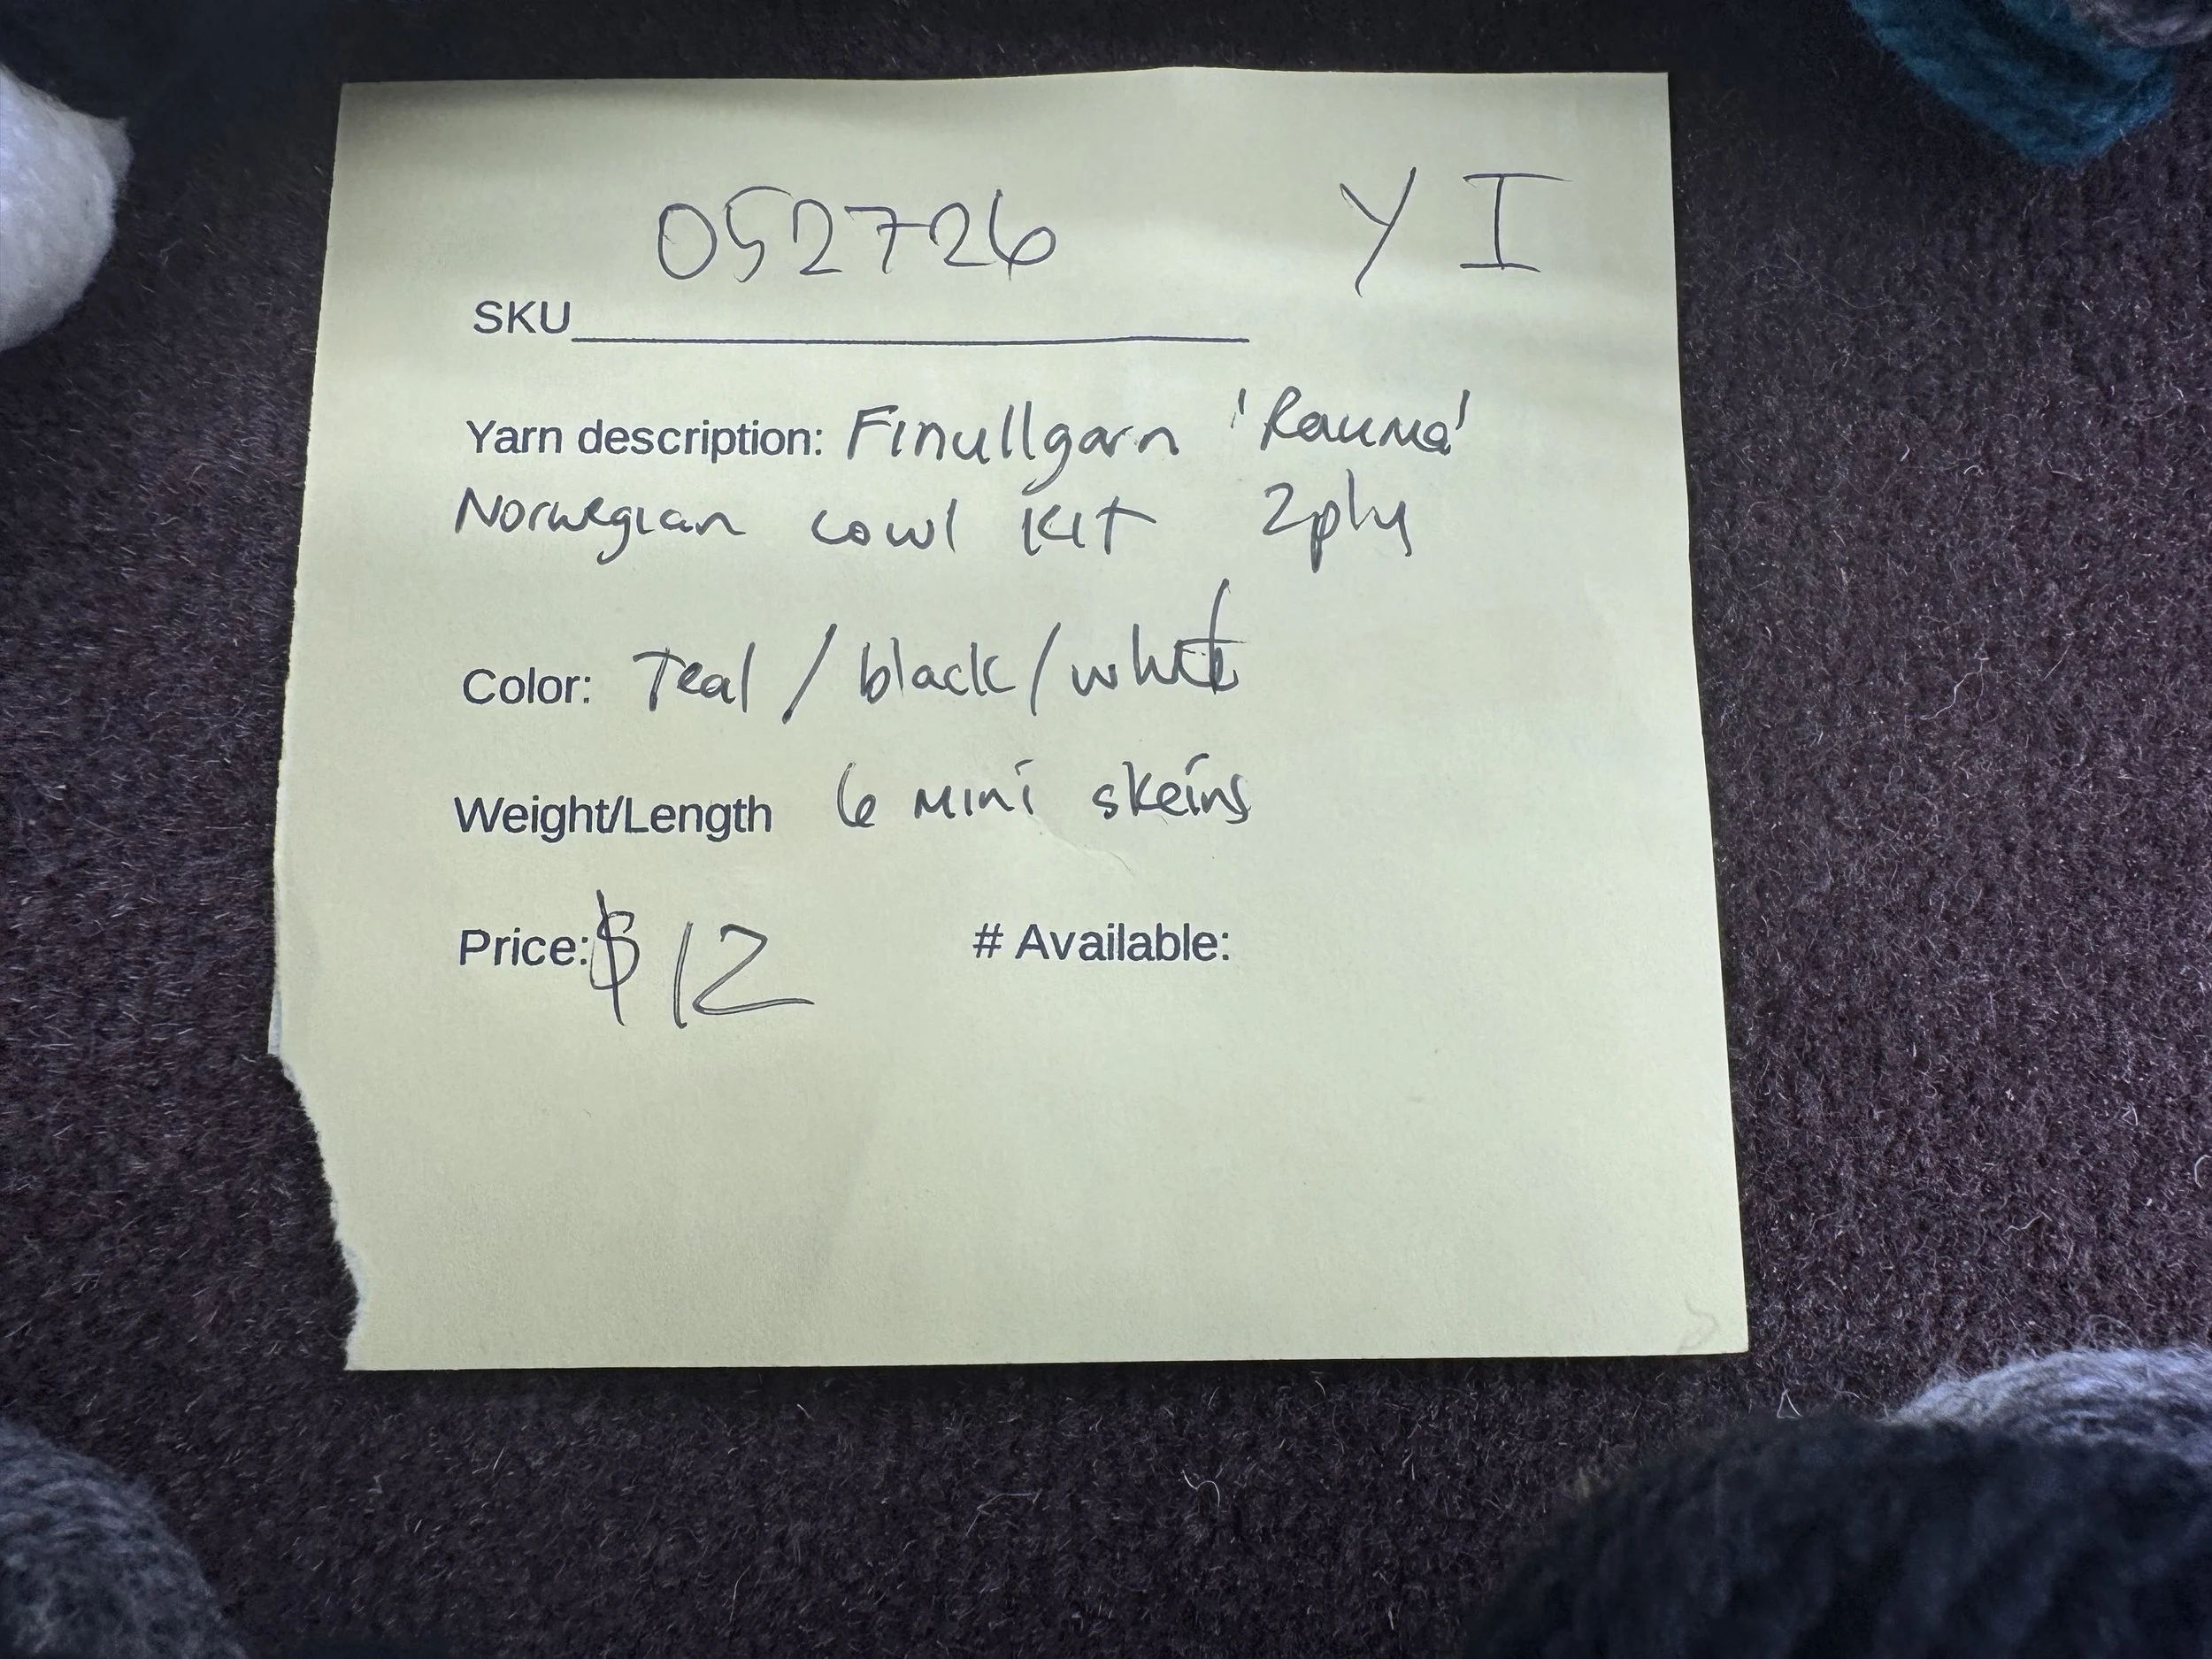 052726 Y I
SKU
Yarn description: Finullgarn 'Rauma'
Norwegian cowl kit 2ply
Color: Teal / black / white
Weight/Length 6 mini skeins
Price: $12 # Available: